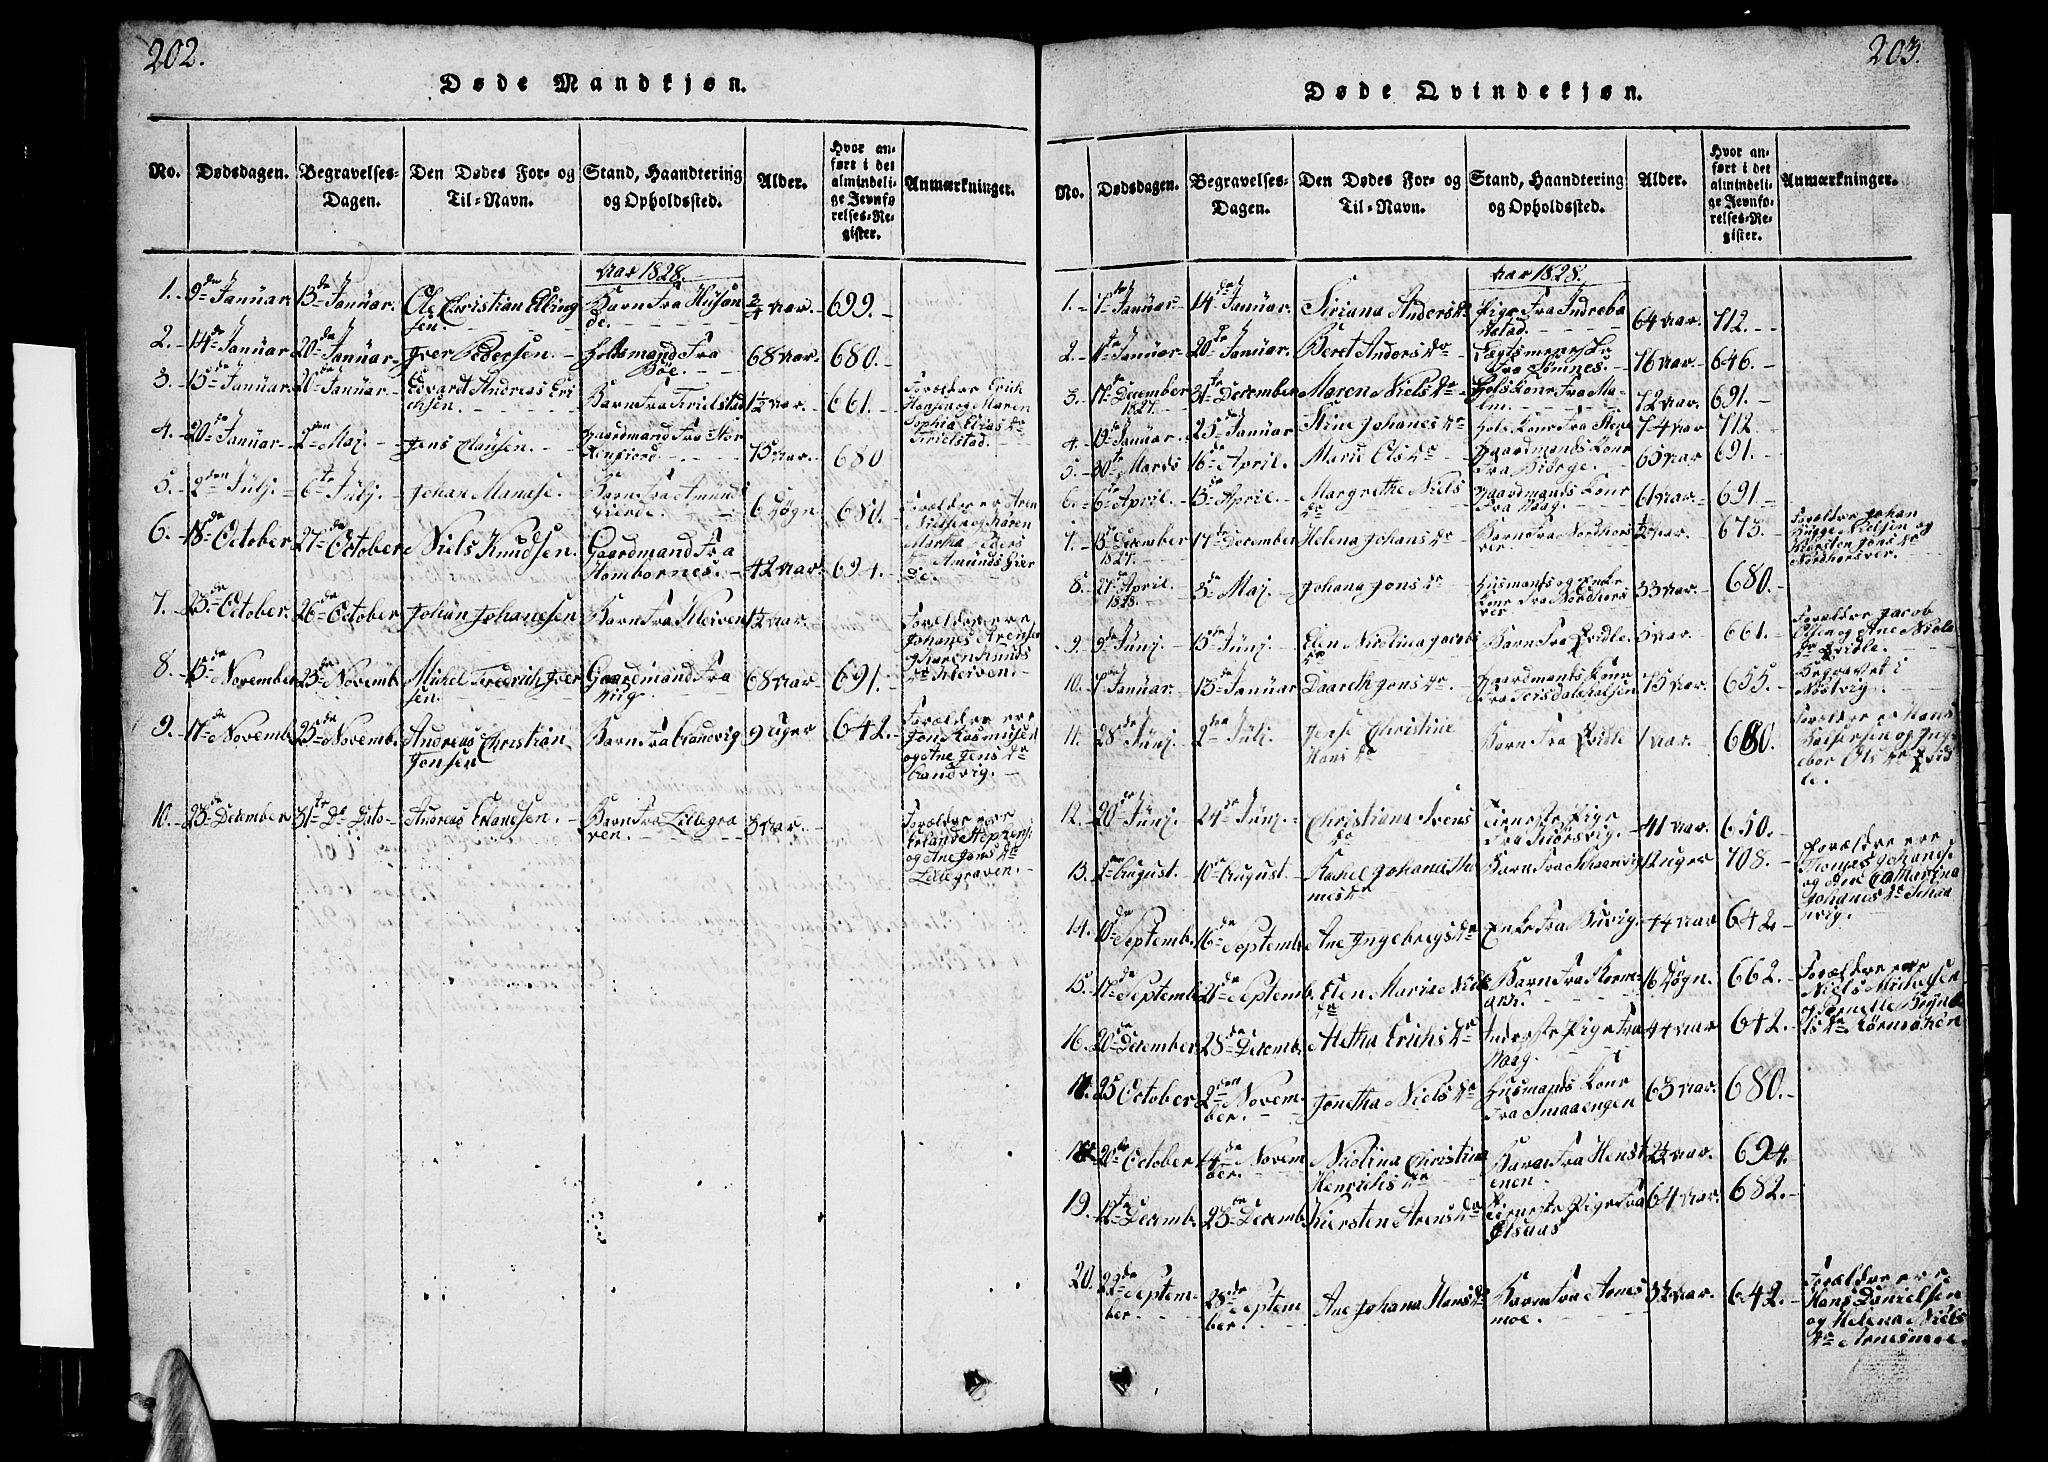 202.
Døde Mandkjøn.
No. Dødsdagen. Begravelses-Dagen. Den Dødes For- og Til-Navn. Stand, Haandtering og Opholdssted. Alder. Hvor anført i det almindelige Jevnførelses-Register. Anmærkninger.
Aar 1828.
1. 9de Januar 13de Januar. Ole Christian Elling
sen. Barn fra Husön
de. 3/4 Aar. 699.
2. 14de Januar 20de Januar. Iver Pedersen. Huusmand fra
Böe. 68 Aar. 680.
3. 15de Januar. Januar. Edvardt Andreas Eri
chsen. Barn fra Tirielstad 1½ Aar. 661. Forældre Erich
Hansen og Maren
Sophia Elias Dr
Tirielstad.
4. 20de Januar 2den Maj. Jens Clausen. Gaardmand fra
75 Aar. 680
5. 2den Julj. 6te Julj. Johan Manase. Barn fra Amunds
Gierde. 6 Døgn. 680. Forældre er Aren
Nielsen og Karen
Martha Peders
Amunds Gier
de.
6. 18de October 27de October Niels Knudsen. Gaardmand fra
Hambornes. 42 Aar. 694.
7. 23de October. 26de October Johan Johanesen Barn fra Kleiven 1½ Aar. Forældre ere
Johanes Arensen
og Karen Knuds
Dr Kleiven.
8. 15de November 23de Novemb. Michel Fredrich Iver
sen. Gaardmand fra
Aug. 68 Aar 691.
9. 17de Novemb. 23de Novemb. Andreas Christian
Jonsen Barn fra Sandvig 9 Uger 642. Forældre ere
Jon Rasmusen
og Ane Jens Dr
Sandvig.
10. 23de December 31te Do Dato Andreas Erlandsen. Barn fra Lillegra
ven. 3 Aar. Forældre ere
Erland
og Ane Jons Dr
Lillegraven.
203.
Døde Qvindekjøn.
No. Dødsdagen. Begravelses-Dagen. Den Dødes For- og Til-Navn. Stand, Haandtering og Opholdssted. Alder. Hvor anført i det almindelige Jevnførelses-Register. Anmærkninger.
Aar 1828.
1. 7de Januar 14de Januar. Siriana Anders Dr Pige fra Indreba
stad. 64 Aar. 712.
2. Januar. 20de Januar. Beret Anders Dr Lægtsmenske
fra Sömnes. 76 Aar. 646.
3. 17de December
1827. 31te December Maren Niels Dr Huuskone fra Ma
lm. 72 Aar. 691.
4. 19de Januar. 25de Januar. Stine Johanes Dr Kone fra 74 Aar 712
5. 30te Marts 16de April. Marie Ols Dr Gaardmands Kone
fra Biörge. 65 Aar 691.
6. 6te April. 13de April. Margrethe Niels
Dr Gaardmands Kone
fra Haag. 61 Aar. 691
7. 13de December
1827. 17de December Helena Johans Dr Barn fra Nordhors
ver. ½ Aar. 673. Forældre Johan
Nielsen og
Kiersten Jons Dr
Nordhorsver.
8. 27de April.
1828. 3de Maj. Johana Jons Dr Husmands og Enke
Kone fra Nordhors
ver 33 Aar. 680.
9. 9de Junj. 15de Junj. Elen Nicolina Jacobs
Dr Barn fra Qvidle 5 Aar. 661. Forældre Jacob
Olsen og Ane Niels
Dr Qvidle.
10. 7de Januar. 13de Januar Daareth Jons Dr Gaardmands Kone
fra Torsdalshalsen 75 Aar. 655. Begravet i
Nöstvig.
11. 28de Junj. 2den Julj. Christine
Hans Dr Barn fra Qvidle 1 Aar. 680. Forældre er Hans
og Inge
bor Ols Dr Qvid
le.
12. 20de Junj. 24de Junj. Christiana Svens
Dr Tieneste Pige
fra 41 Aar. 650.
13. August. 10de August. Rachel Johana Tho
mes Dr Barn fra Skaanvig Uger 708. Forældre ere
Thomas Johans.
og Ane Catharina
Johanes Dr Skaa
nvig.
14. 10de Septemb. 16de Septemb. Ane Ingebregs Dr Enke fra Husvig. 44 Aar 642.
15. 17de Septemb 21de Septemb. Elen Marie Niels
Dr Barn fra Korm-
16 Døgn. 662. Forældre ere
Niels Michelsen
og Pernelle
Dr
16. 20de December. 28de Decemb. Aletha Erichs Dr Inderste Pige fra
Haag. 44 Aar 642.
17. 25 October 2den Novem
ber. Jonetha Niels Dr Husmands Kone
fra Smaaengen 63 Aar. 680.
18. 20de October 4de Novem
ber. Nicolina Christina
Henrichs Dr Barn fra Henst
enen. 2½ Aar. 694.
19. 17de Decemb. 23de Decemb. Kiersten Arens Dr Tieneste Pige fra
Elsaas 64 Aar. 682.
20. 22de Septem-
ber. 28de Septem
ber. Ane Johana Hans Dr Barn fra Arnes
moe. 3½ Aar. 642. Forældre ere
Hans Danielsen
og Helena Niels
Dr Arnesmoe.